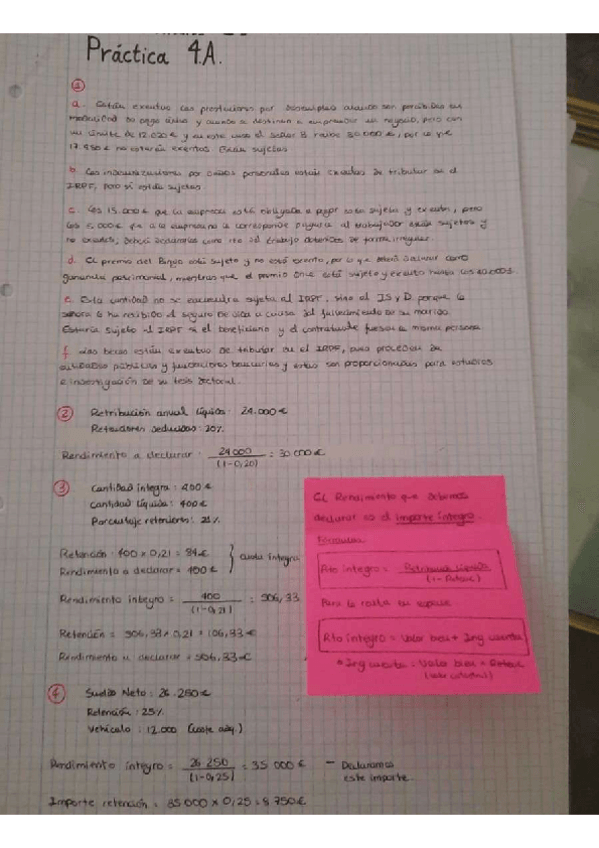 Práctica 4.A.
①
a. Están exentas las prestaciones por desempleo cuando son percibidas en
modalidad de pago único y cuando se destinen a emprender un negocio, pero con
un límite de 12.020 € y en este caso el señor B recibe 30.000 €, por lo que
17.980 € no estarán exentos. Están sujetos
b. Las indemnizaciones por daños personales están exentas de tributar en el
IRPF, pero sí están sujetas.
c. Los 15.000 € que la empresa está obligada a pagar están sujetos y exentos, pero
los 5.000 € que a la empresa no le corresponde pagarla al trabajador están sujetos y
no exentos, deberá declararlos como rto del trabajo obtenidos de forma irregular.
d. El premio del Bingo está sujeto y no está exento, por lo que deberá declarar como
ganancia patrimonial, mientras que el premio Once está sujeto y exento hasta los 40.000 €.
e. Esta cantidad no se encuentra sujeta al IRPF, sino al ISyD porque la
señora lo ha recibido el seguro de vida a causa del fallecimiento de su marido.
Estaría sujeto al IRPF si el beneficiario y el contratante fuesen la misma persona
f. Las becas están exentas de tributar en el IRPF, pues proceden de
entidades públicas y fundaciones bancarias y están son proporcionadas para estudios
e investigación de su tesis doctoral.
② Retribución anual líquida: 24.000 €
Retenciones deducidas: 20%
Rendimiento a declarar: 24000 / (1-0,20) = 30 000 €
③ Cantidad íntegra: 400 €
Cantidad líquida: 400 €
Porcentaje retenciones: 21%
Retención: 400 × 0,21 = 84 € } cuota íntegra
Rendimiento a declarar = 400 €
Rendimiento íntegro = 400 / (1-0,21) = 506,33
Retención = 506,33 × 0,21 = 106,33 €
Rendimiento a declarar = 506,33 €
El Rendimiento que debemos
declarar es el importe íntegro.
Fórmulas
Rto íntegro = Retribución líquida / (1 - Retenc)
Para la renta en especie
Rto íntegro = Valor bien + Ing cuenta
* Ing cuenta = Valor bien × Retenc
④ Sueldo Neto: 26.250 €
Retención: 25%
Vehículo: 12.000 (coste adq.)
Rendimiento íntegro = 26 250 / (1-0,25) = 35 000 € – Declaramos
este importe.
Importe retención = 35 000 × 0,25 = 8 750 €